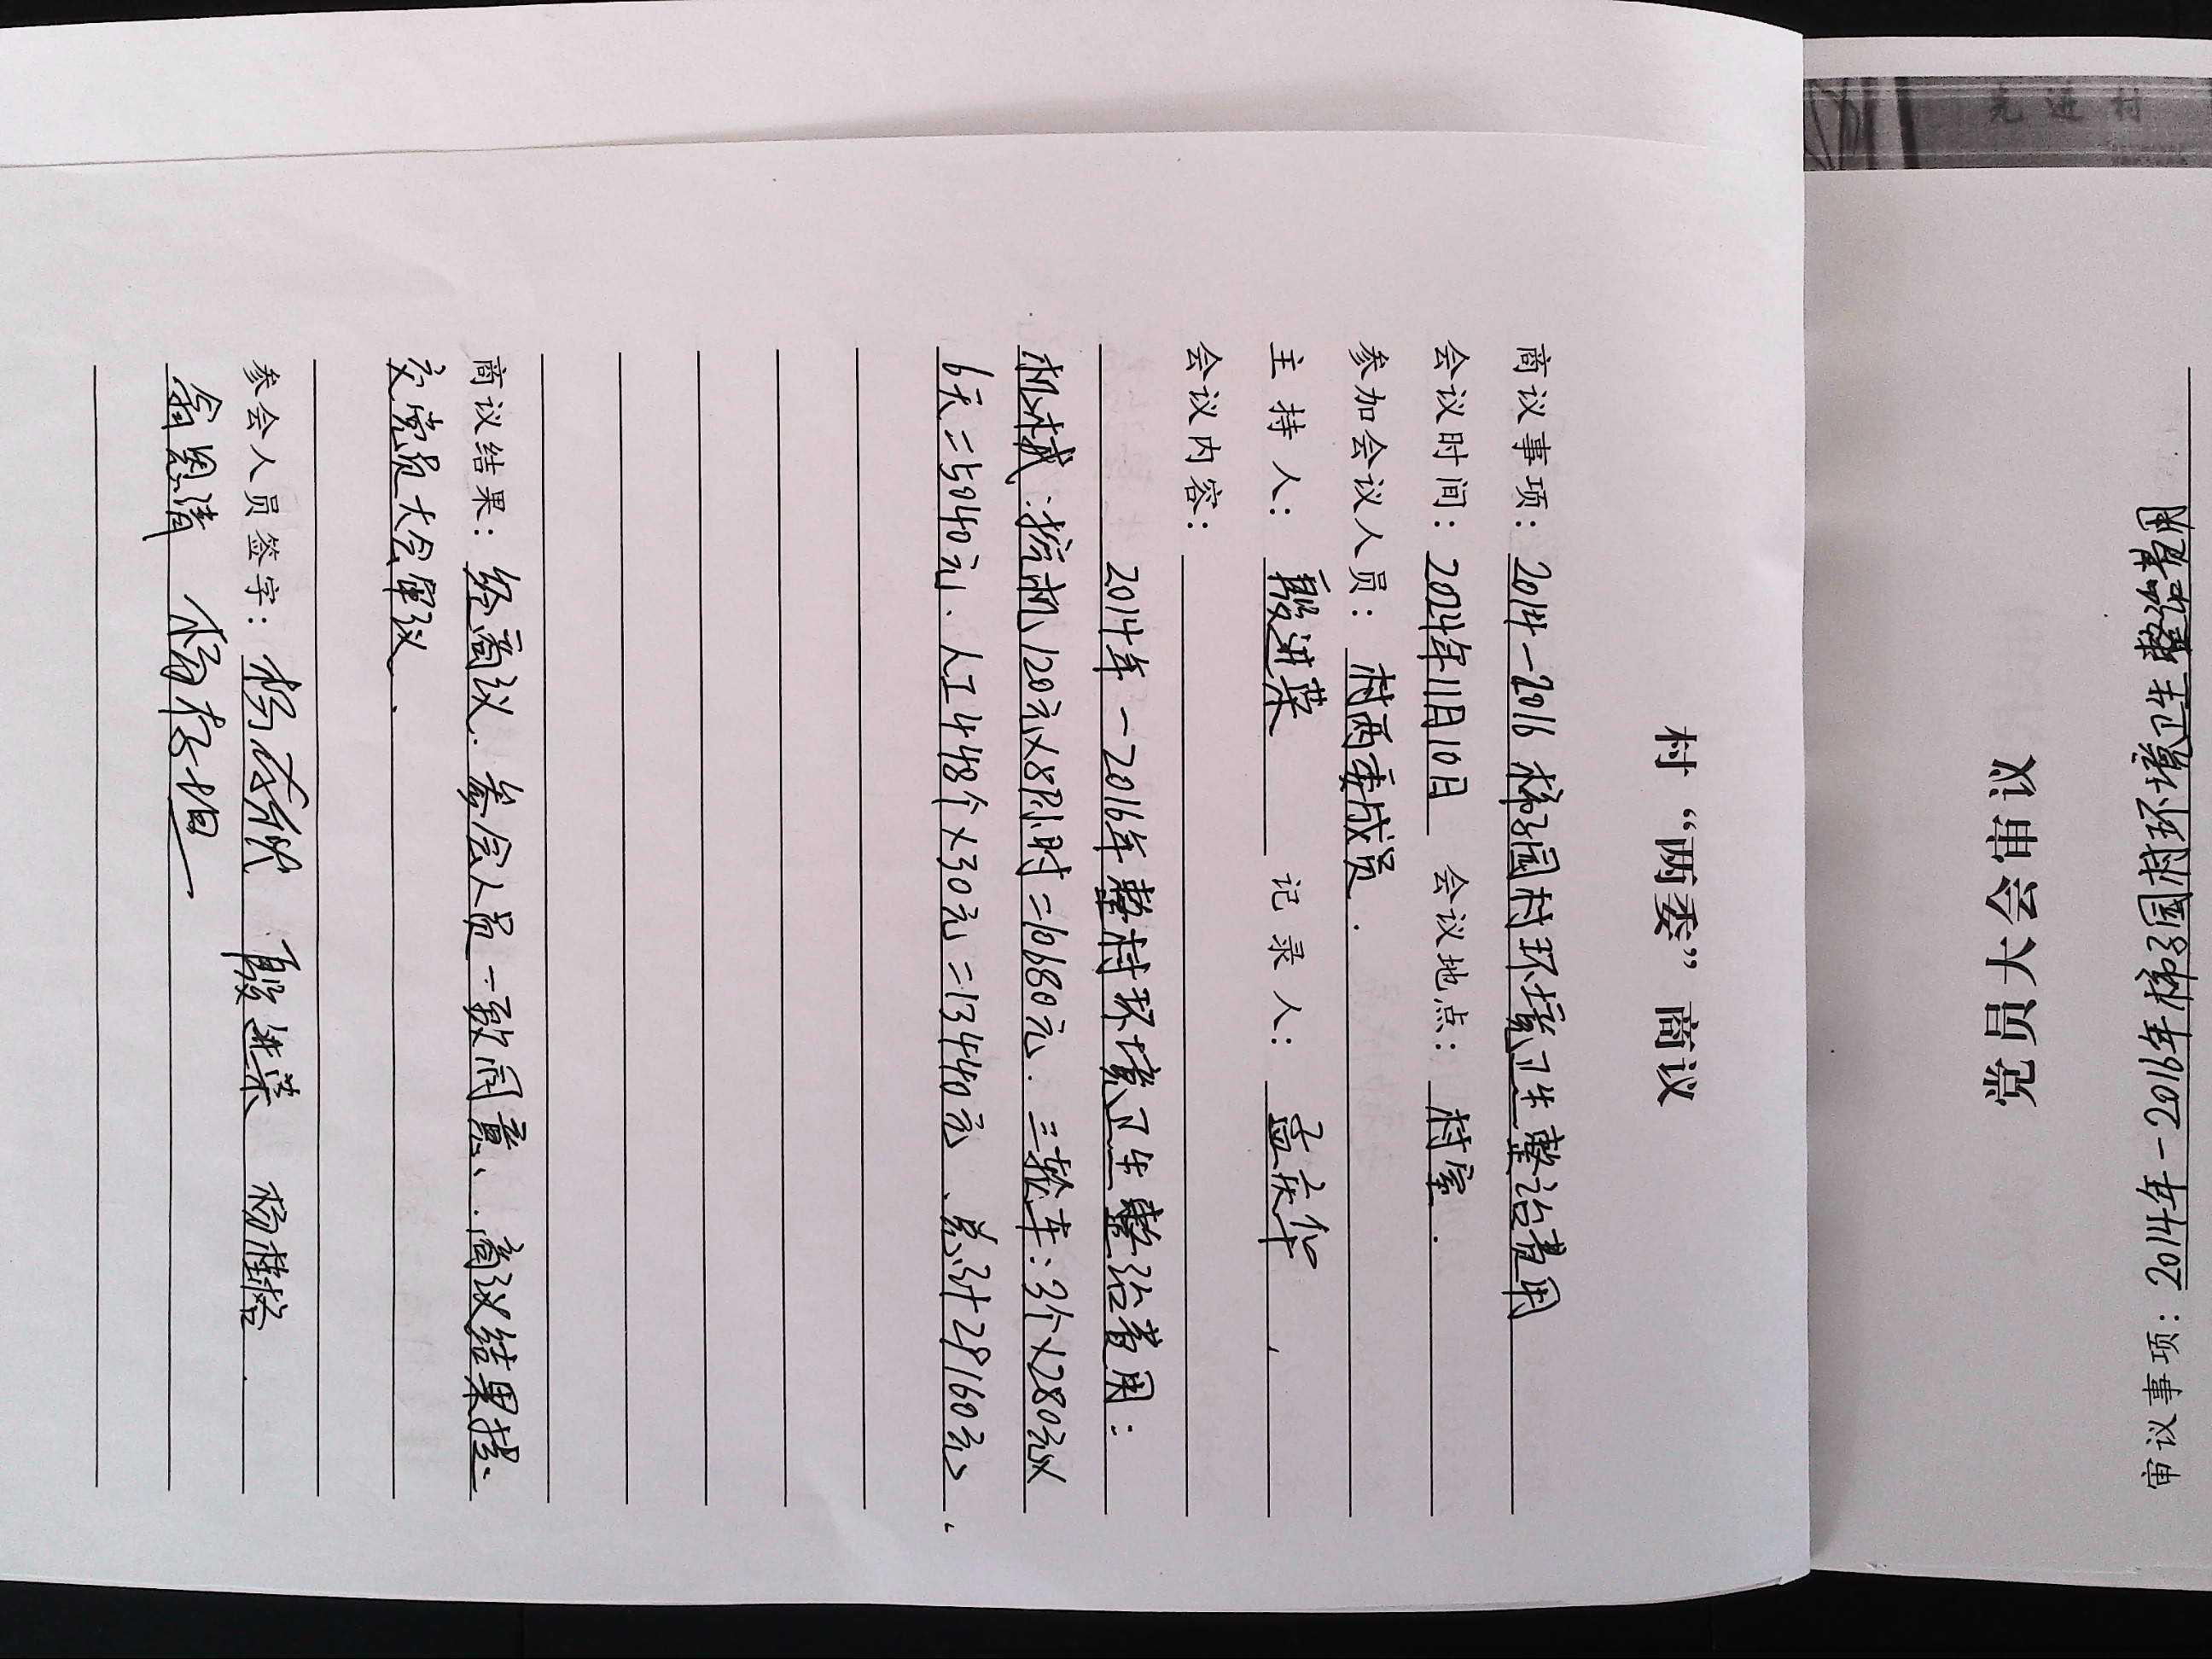 村“两委”商议
商议事项：2014-2016梯子园村环境卫生整治费用
会议时间：2024年11月10日 会议地点：村室.
参加会议人员：村两委成员.
主持人：殷进荣 记录人：孟庆华
会议内容：
2014年-2016年整村环境卫生整治费用：
机械：挖机120元×89小时=10680元. 三轮车：3个×280元×
6天=5040元、人工448个×30元=13440元、总计29160元、
商议结果：经商议.参会人员一致同意、商议结果提
交党员大会审议、
参会人员签字： 殷进荣
先进村
党员大会审议
审议事项：2014年-2016年梯子园村环境卫生整治费用